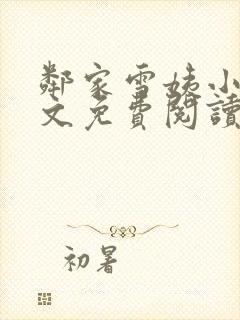 鄰家雪姨小
文免費閱讀
初暑